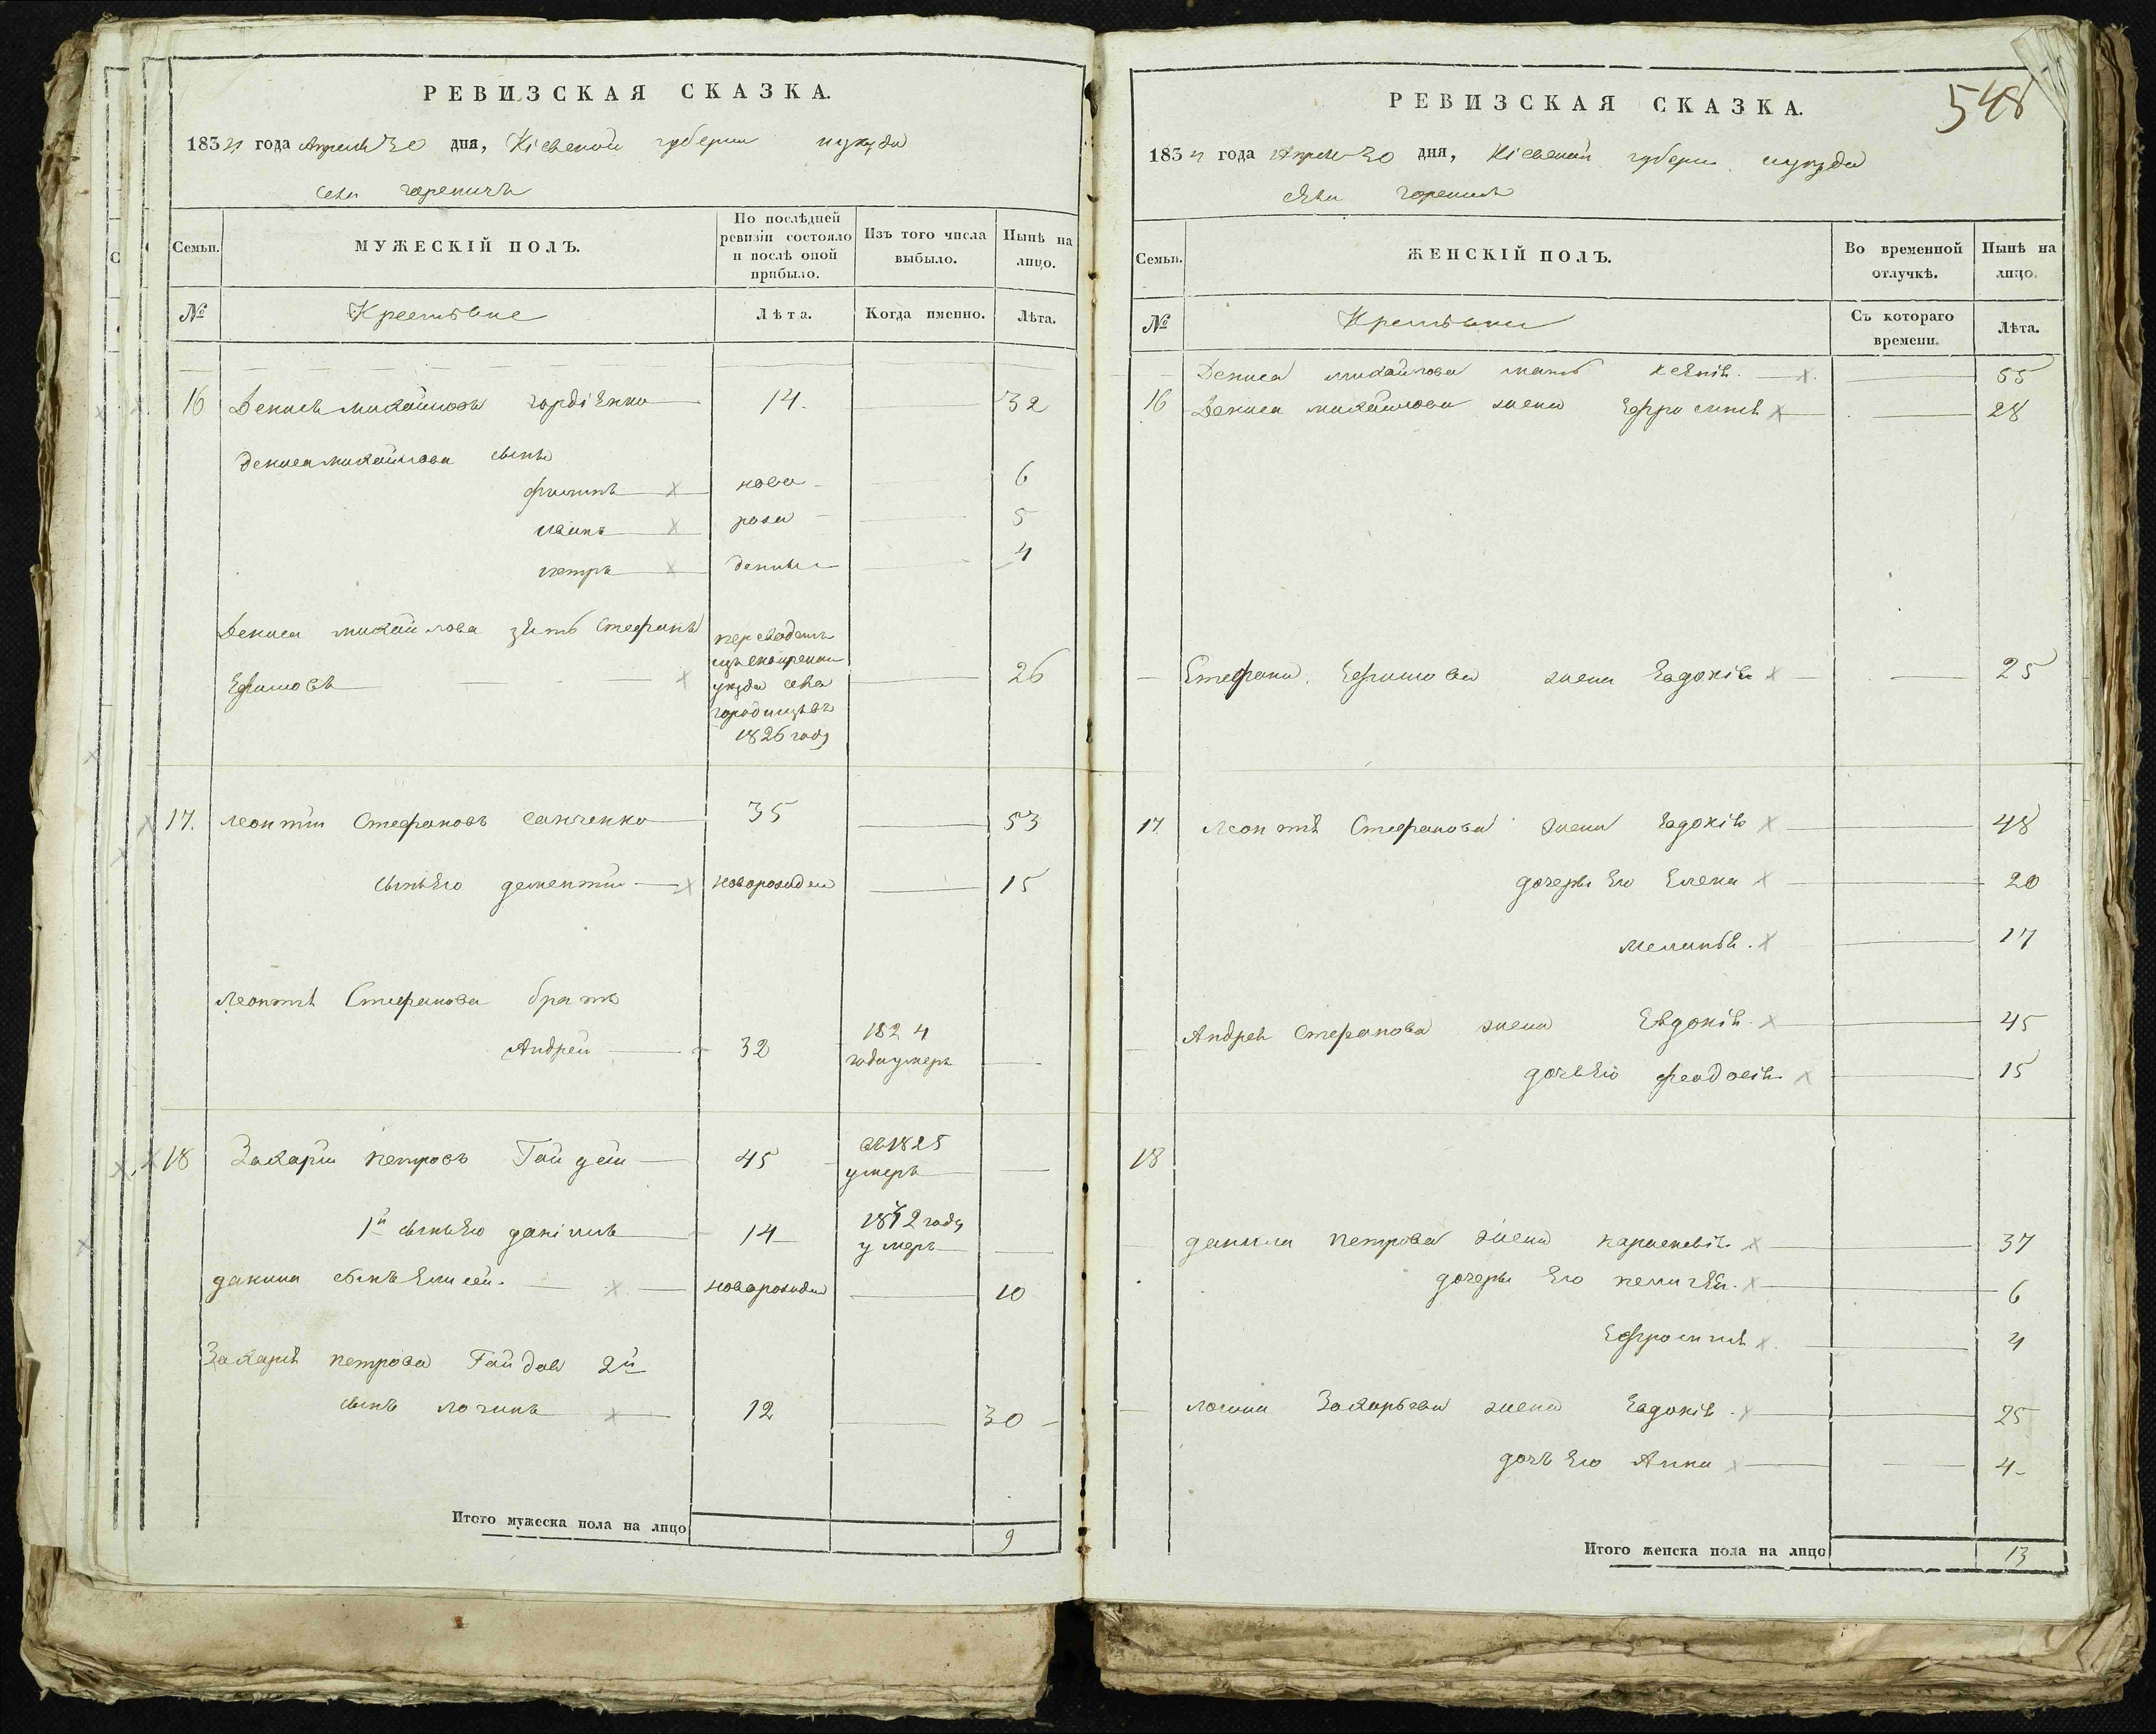 РЕВИЗСКАЯ СКАЗКА.
1834 года Апреля 30 дня, Кіевской губерніи и уѣзда
села Гореничъ
Семьи.
МУЖЕСКІЙ ПОЛЪ.
По послѣдней ревизіи состояло и послѣ оной прибыло.
Изъ того числа выбыло.
Нынѣ на лицо.
№
Крестьяне
Лѣта.
Когда именно.
Лѣта.
16 Денисъ михайловъ гордіенко 14 32
дениса михайлова сыны
филипъ ново 6
иванъ рожд 5
петръ денные 4
Дениса михайлова зять Стефанъ переведенъ
Ефимовъ изъ 26
уѣзда села
городищъ въ
1826 году
17. леонтій Стефановъ санченко 35 53
сынъ Его дементій новорожден 15
леонтія Стефанова братъ
Андрей 32 1824 года умеръ
18 Захарій петровъ Гайдай 45 въ 1825 умеръ
1й сынъ Его данілъ 14 1832 году умеръ
данила сынъ Елисей новорожден 10
Захарія петрова Гайдая 2й
сынъ логинъ 12 30
Итого мужеска пола на лицо 9
РЕВИЗСКАЯ СКАЗКА.
548
1834 года Апреля 30 дня, Кіевской губерніи и уѣзда
села Горенич
Семьи.
ЖЕНСКІЙ ПОЛЪ.
Во временной отлучкѣ.
Нынѣ на лицо.
№
Крестьянки
Съ котораго времени.
Лѣта.
Дениса михайлова мать ксенія 55
16 Дениса михайлова жена Ефросинія 28
Стефана Ефимова жена Евдокія 25
17 леонтія Стефанова жена Евдокія 48
дочеры Его Елена 20
меланья 17
Андрея Стефанова жена Евдокія 45
дочь Его феодосія 15
18
данила петрова жена 37
дочеры Его пелагѣя 6
Ефросинія 4
логина Захарьева жена Евдокія 25
дочь Его Анна 4
Итого женска пола на лицо 13